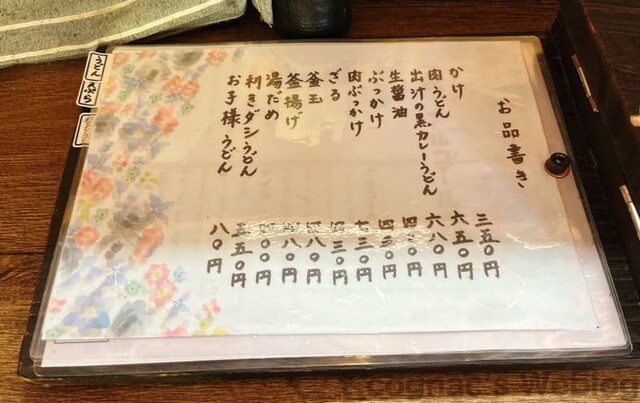 お品書き
かけ 三五〇円
肉うどん 六五〇円
出汁の黒カレーうどん 六八〇円
生醤油
ぶっかけ 四三〇円
肉ぶっかけ 七三〇円
ざる 四三〇円
釜玉 四八〇円
釜揚げ 四八〇円
湯だめ
利きダシうどん 五五〇円
お子様うどん 八〇円
うどん
Cognac's Weblog